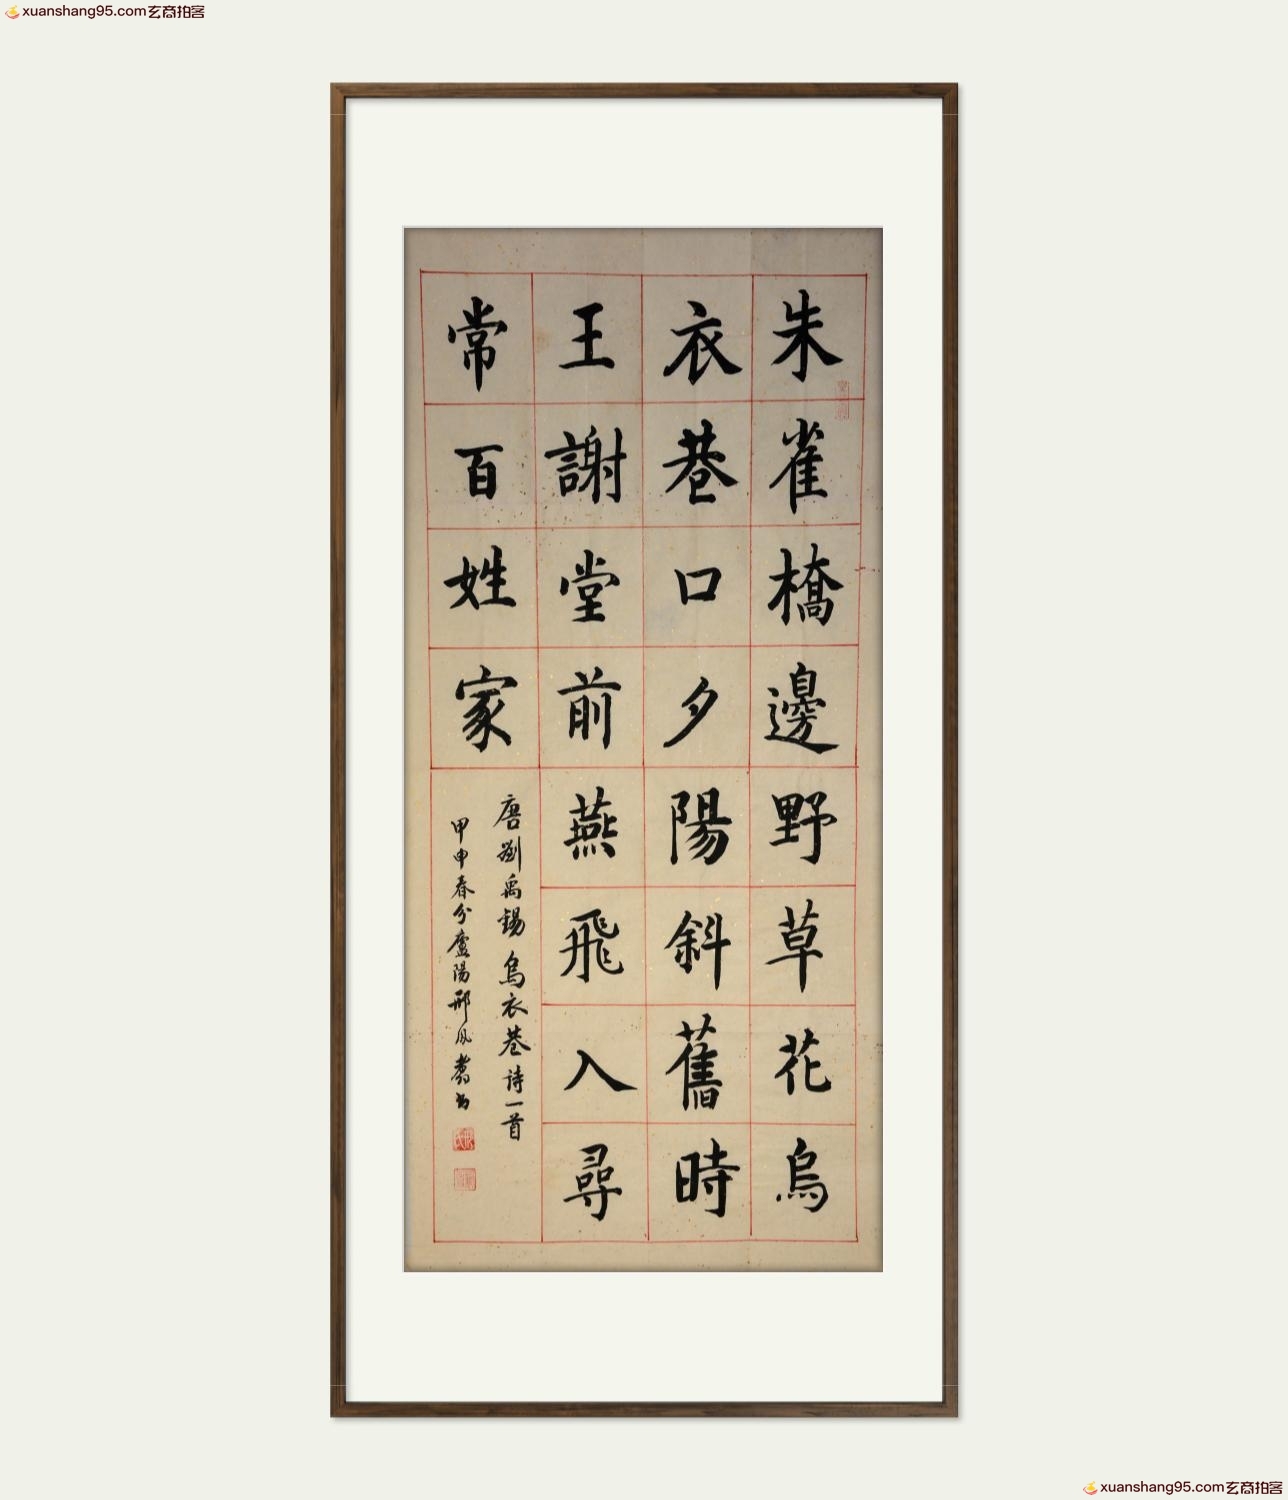 xuanshang95.com玄商拍客
朱雀橋邊野草花烏
衣巷口夕陽斜舊時
王謝堂前燕飛入尋
常百姓家
唐劉禹錫烏衣巷诗一首
甲申春分廬陽邢凤翥书
xuanshang95.com玄商拍客